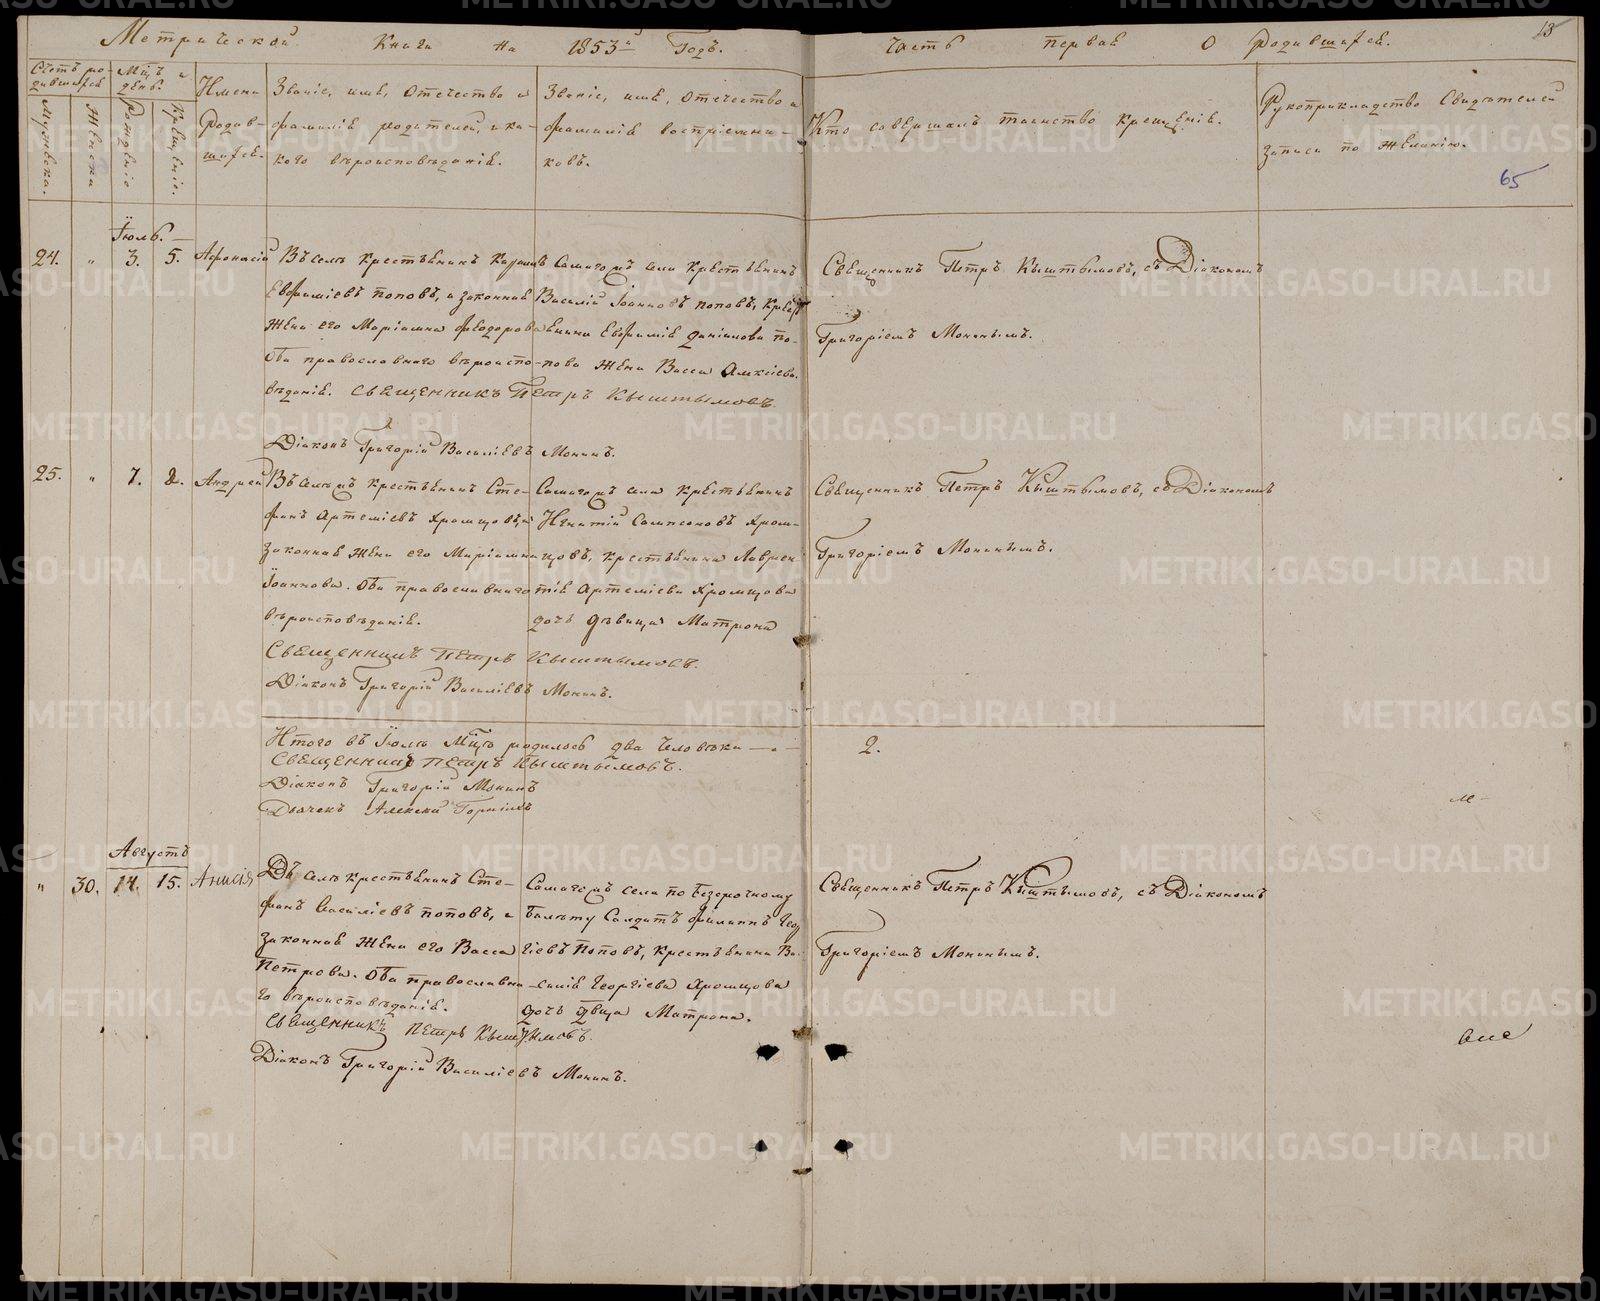 Метрической Книги на 1853й Годъ.
Часть первая О Родившихся.
13
65
Счетъ родившихся
Мѣсяцъ и день.
Мужеска.
Женска
Рожденіе
Крещеніе.
Имена
Родив-
шихся.
Званіе, имя, отечество и
фамилія родителей, и ка-
кого вѣроисповѣданія.
Званіе, имя, отечество и
фамилія воспріемни-
ковъ.
Кто совершалъ таинство крещенія.
Рукоприкладство свидѣтелей
записи по желанію.
Іюль.
24. " 3. 5. Афонасій
Въ селѣ крестьянинъ
Евфиміевъ Поповъ, и законная
жена его Маріамна Феодорова
Оба православнаго вѣроиспо-
вѣданія. Священникъ Петръ Кыштымовъ.
Діаконъ Григорій Василіевъ Монинъ.
села крестьянинъ
Василій Іоанновъ Поповъ, крестья
янина Евфимія Даніилова По-
пова жена Васса Алексіева.
Священникъ Петръ Кыштымовъ, съ Діакономъ
Григоріемъ Монинымъ.
25. " 7. 8. Андрей
Въ селѣ крестьянинъ Сте-
фанъ Артеміевъ Хромцовъ, и
законная жена его Маріамна
Іоаннова. Оба православнаго
вѣроисповѣданія.
Священникъ Петръ Кыштымовъ.
Діаконъ Григорій Василіевъ Монинъ.
села крестьянинъ
Игнатій Сампсоновъ Хром-
цовъ, крестьянина Лаврен
тія Артеміева Хромцова
дочь дѣвица Матрона
Священникъ Петръ Кыштымовъ, съ Діакономъ
Григоріемъ Монинымъ.
Итого въ Іюлѣ Мцѣ родилось два человѣка — 2.
Священникъ Петръ Кыштымовъ.
Діаконъ Григорій Монинъ
Дьячекъ Алексѣй
Августъ
" 30. 14. 15. Анисія
Въ селѣ крестьянинъ Сте-
фанъ Василіевъ Поповъ, и
законная жена его Васса
Петрова. Оба православна-
го вѣроисповѣданія.
Священникъ Петръ Кыштымовъ.
Діаконъ Григорій Василіевъ Монинъ.
села по безсрочному
билету Солдатъ Филиппъ Геор
гіевъ Поповъ, крестьянина Ва-
силія Георгіева Хромцова
дочь двица Матрона.
Священникъ Петръ Кыштымовъ, съ Діакономъ
Григоріемъ Монинымъ.
METRIKI.GASO-URAL.RU